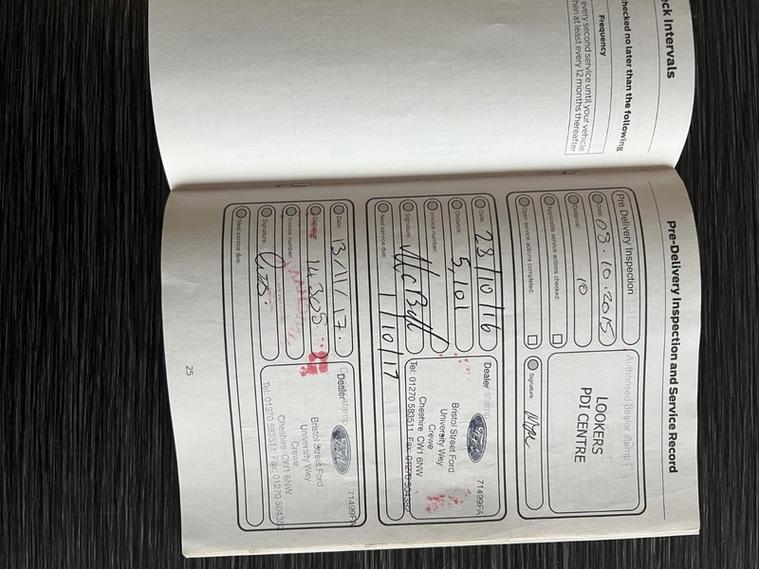 ck Intervals
checked no later than the following
Frequency
every second service until your vehicle
hen at least every 12 months thereafter
Pre-Delivery Inspection and Service Record
Pre Delivery Inspection
Date: 03.10.2015
Distance: 10
Applicable service actions checked:
Open service actions completed:
Authorised dealer stamp
LOOKERS
PDI CENTRE
Signature:
Date: 28/10/16
Distance: 5,101
Invoice number:
Signature:
Next service due: 1/10/17
Dealer stamp
71499FA
Ford
Bristol Street Ford
University Way
Crewe
Cheshire CW1 6NW
Tel: 01270 583511 Fax: 01270 504382
Date: 13/11/17.
Distance: 14305
Invoice number:
Signature:
Next service due:
Dealer stamp
71499FA
Ford
Bristol Street Ford
University Way
Crewe
Cheshire CW1 6NW
Tel: 01270 583511 Fax: 01270 504382
25